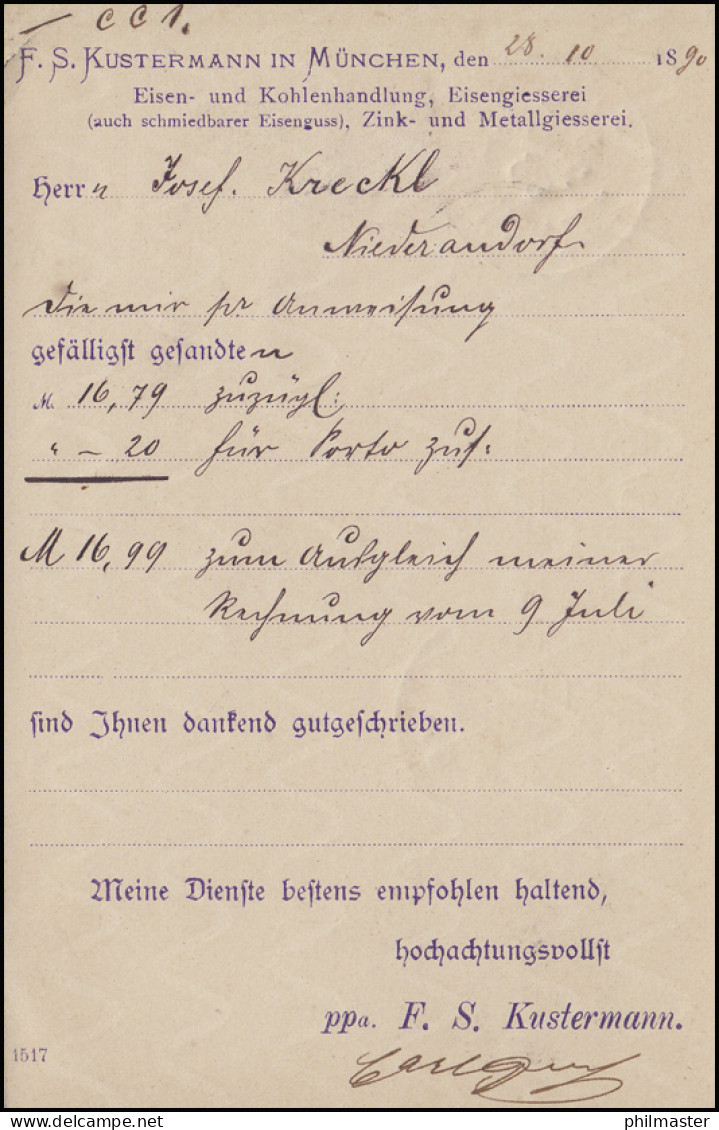 CC1.
F. S. KUSTERMANN IN MÜNCHEN, den 28. 10 1890
Eisen- und Kohlenhandlung, Eisengiesserei
(auch schmiedbarer Eisenguss), Zink- und Metallgiesserei.
Herrn Josef. Kreckl
Niederandorf
Die mir pr Anweisung
gefälligst gesandten
M. 16,79 zuzügl:
" – 20 für Porto zus:
M 16,99 zum Ausgleich meiner
Rechnung vom 9 Juli
sind Ihnen dankend gutgeschrieben.
Meine Dienste bestens empfohlen haltend,
hochachtungsvollst
ppa. F. S. Kustermann.
1517
philmaster